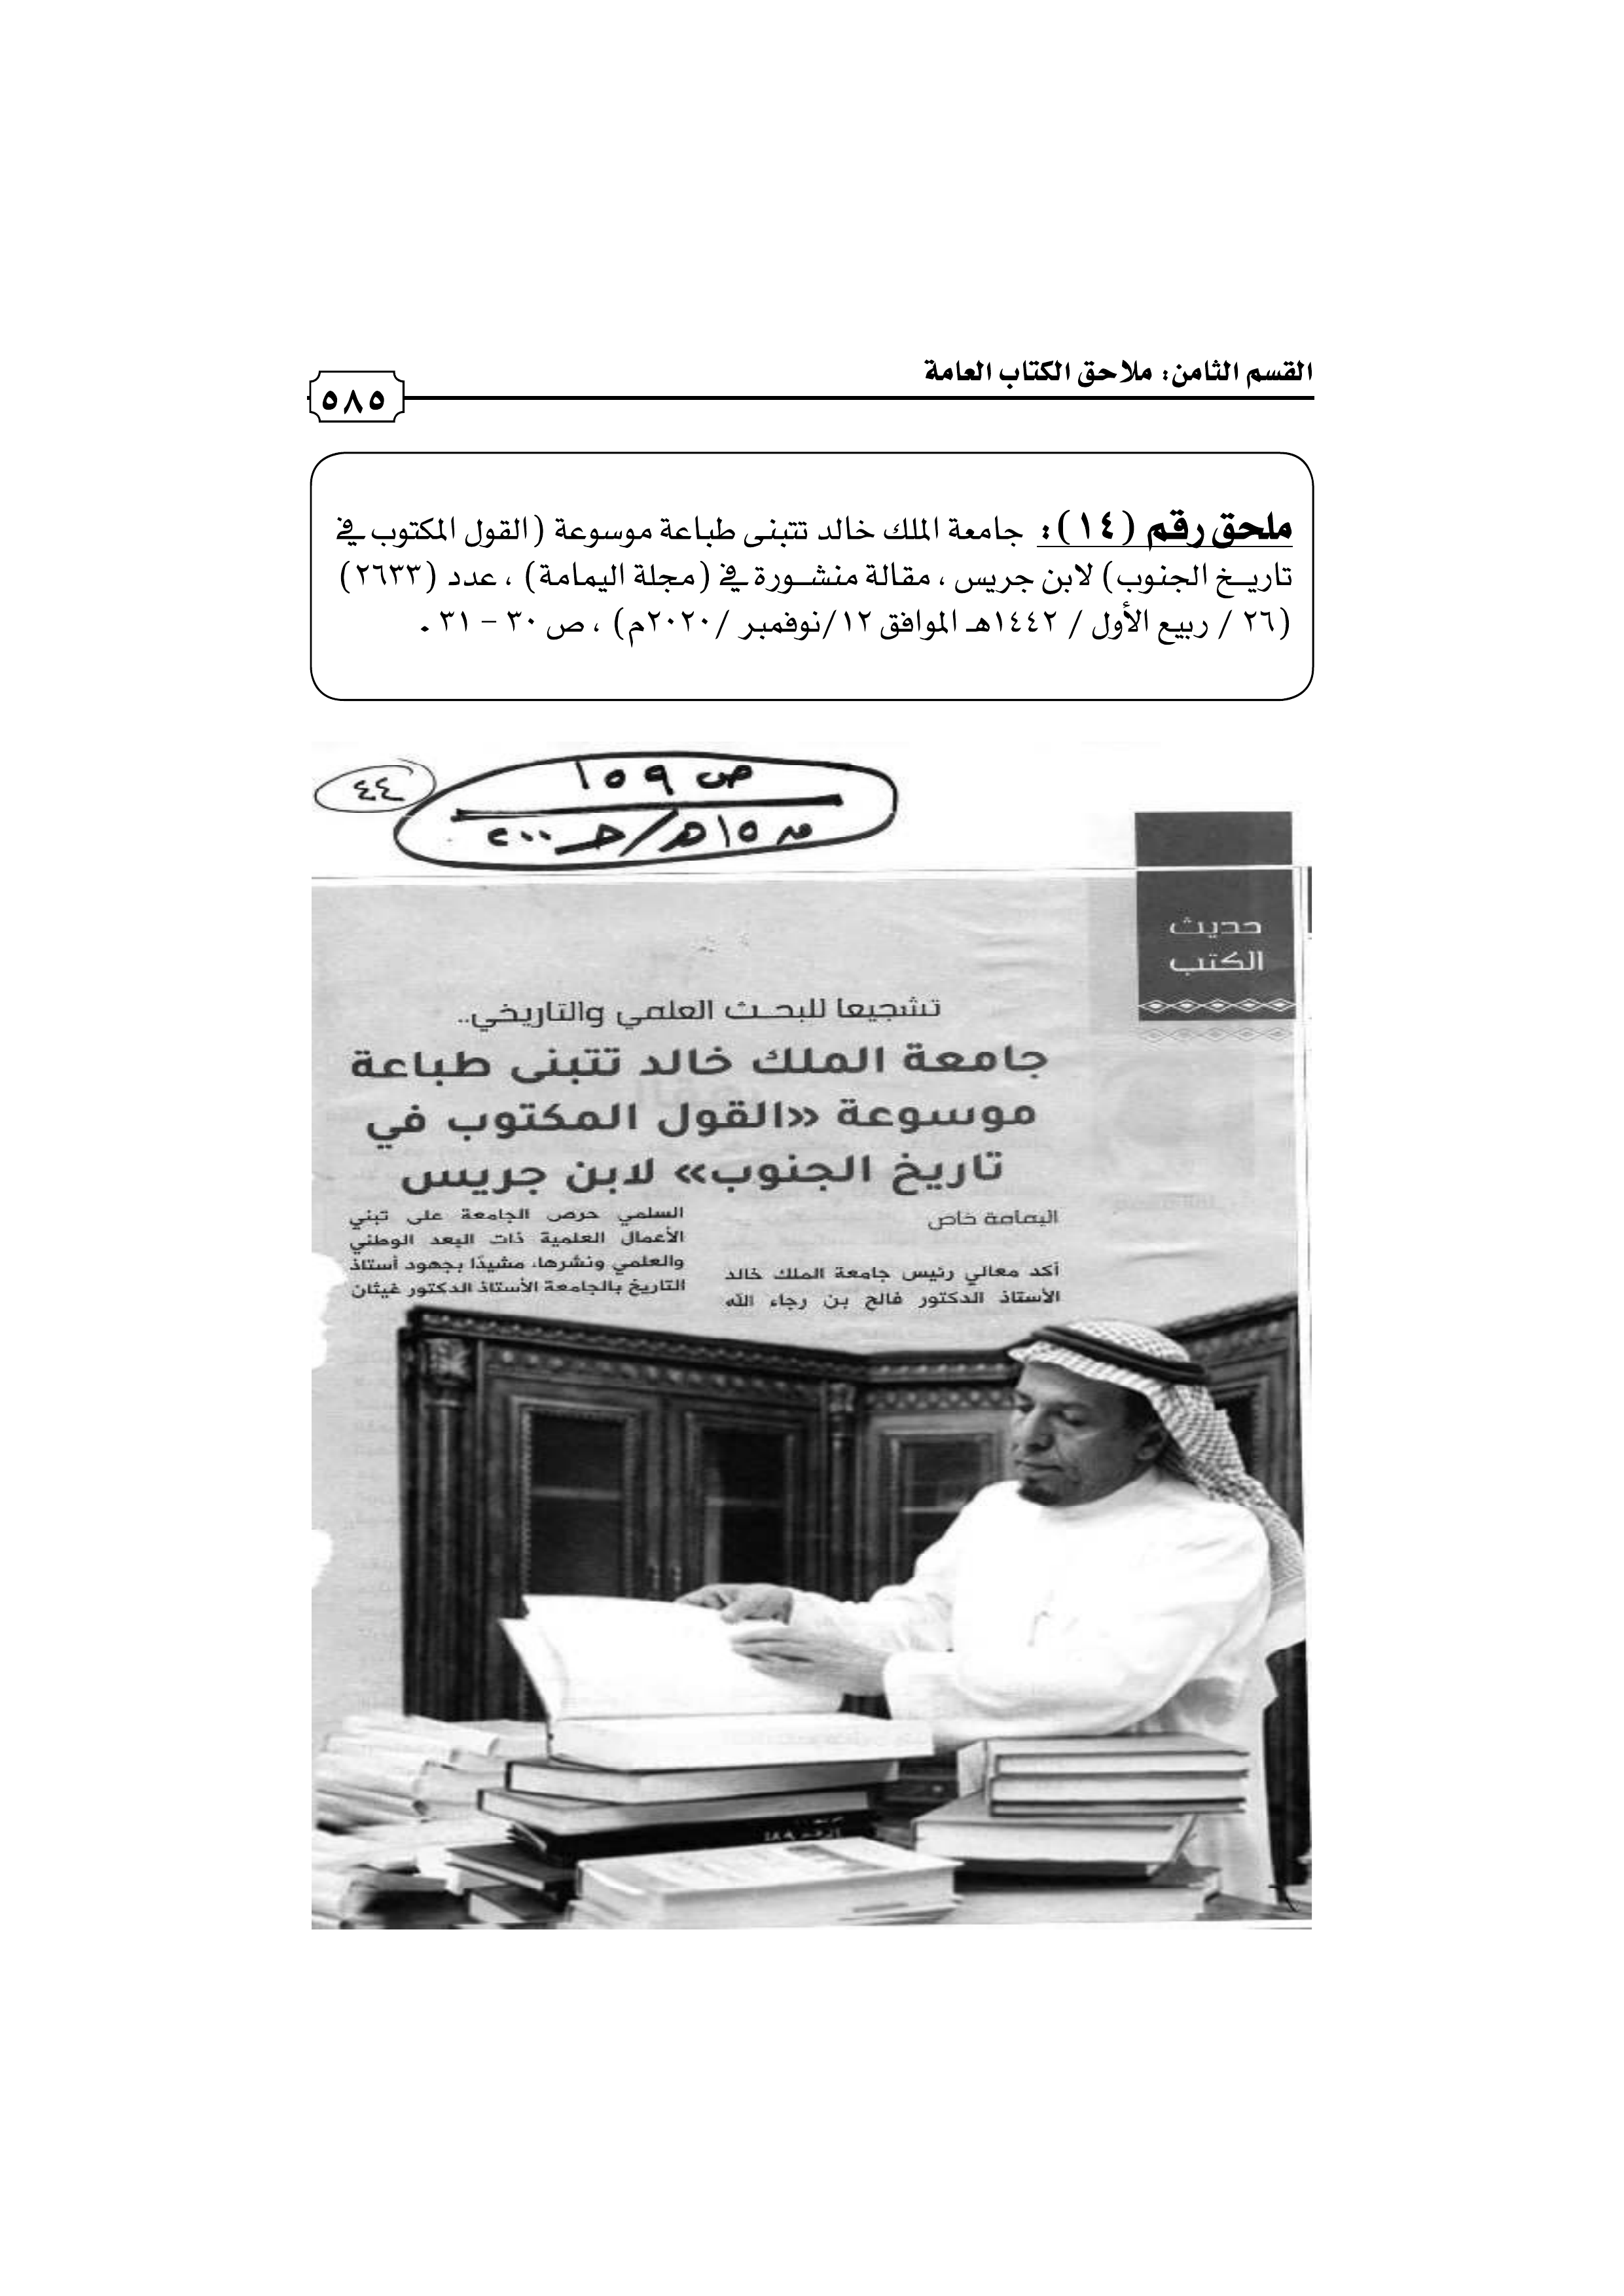 القسم الثامن: ملاحق الكتاب العامة
٥٨٥
ملحق رقم (١٤): جامعة الملك خالد تتبنى طباعة موسوعة (القول المكتوب في
تاريخ الجنوب) لابن جريس ، مقالة منشورة في (مجلة اليمامة) ، عدد (٢٦٣٣)
(٢٦ / ربيع الأول / ١٤٤٢هـ الموافق ١٢/نوفمبر /٢٠٢٠م) ، ص ٣٠ – ٣١ .
٤٤
ص ١٥٩
حديث
الكتب
تشجيعا للبحث العلمي والتاريخي..
جامعة الملك خالد تتبنى طباعة
موسوعة «القول المكتوب في
تاريخ الجنوب» لابن جريس
اليمامة خاص
أكد معالي رئيس جامعة الملك خالد
الأستاذ الدكتور فالح بن رجاء الله
السلمي حرص الجامعة على تبني
الأعمال العلمية ذات البعد الوطني
والعلمي ونشرها، مشيدًا بجهود أستاذ
التاريخ بالجامعة الأستاذ الدكتور غيثان